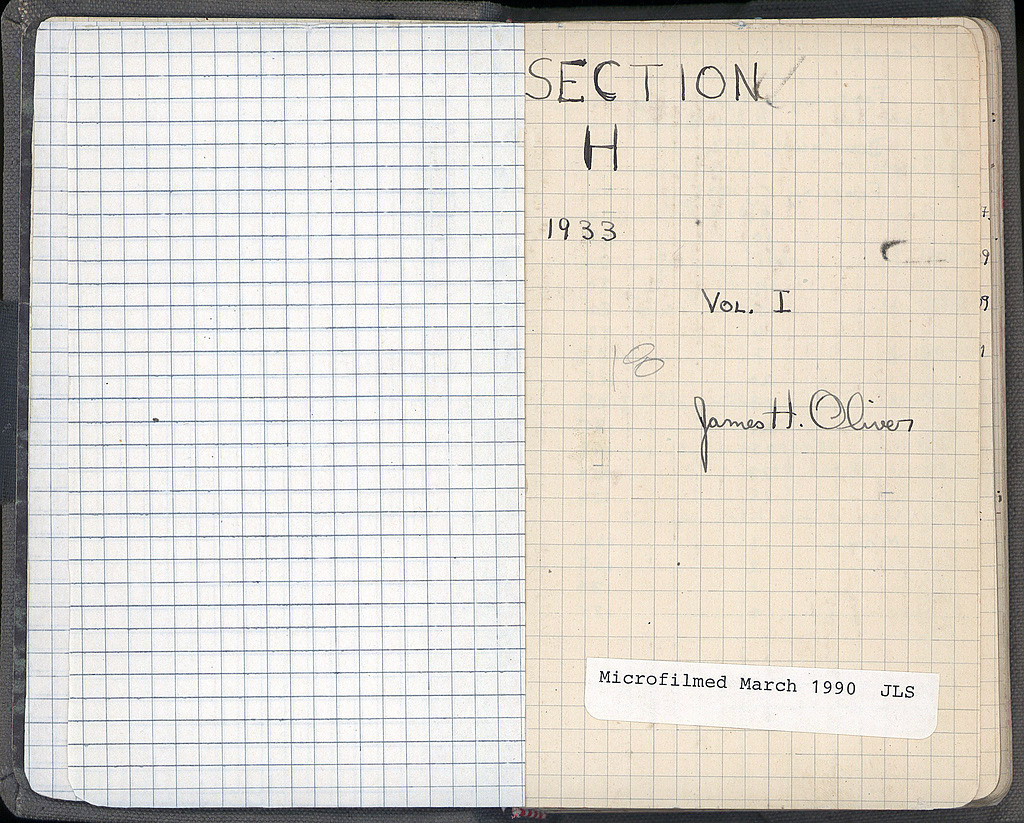 SECTION
H
1933
VOL. I
18
James H. Oliver
Microfilmed March 1990 JLS
7
9
19
1